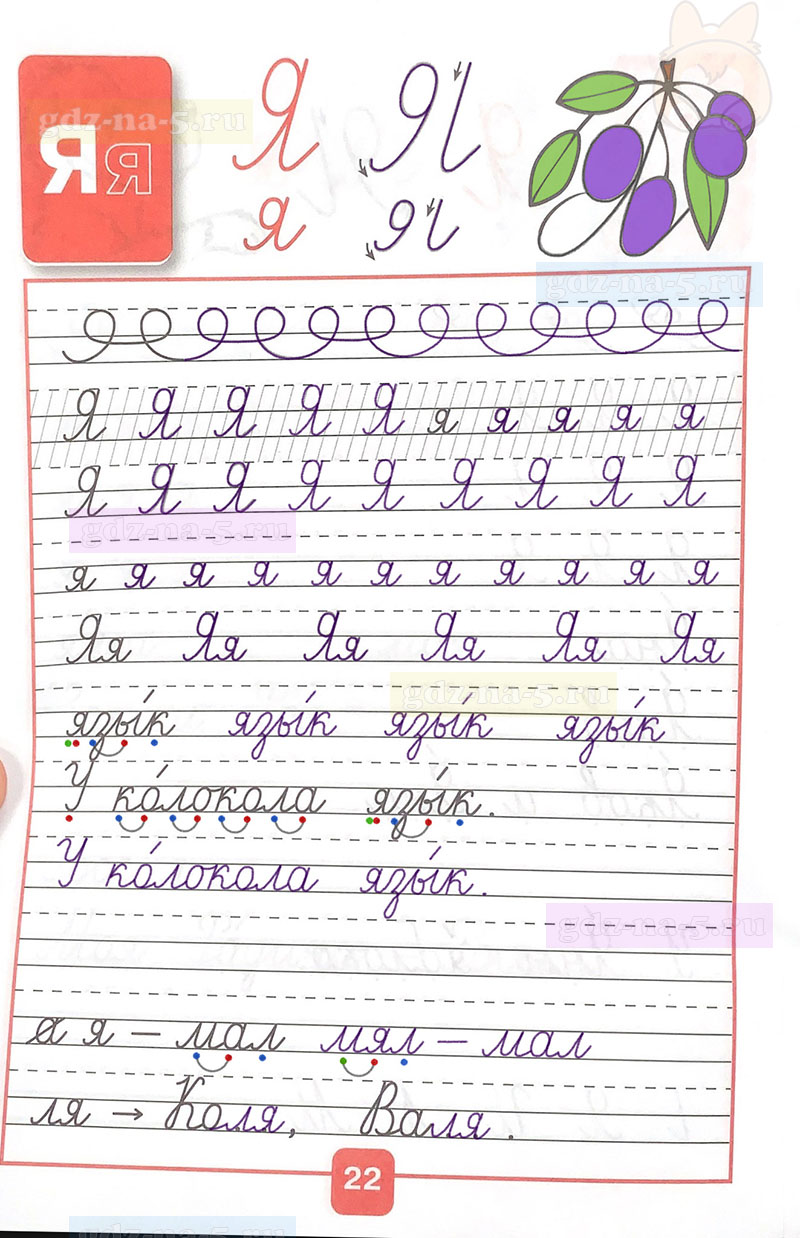 Я Я
Я я
Я я
gdz-na-5.ru
gdz-na-5.ru
Я Я Я Я Я я я я я я
Я Я Я Я Я Я Я Я Я
gdz-na-5.ru
я я я я я я я я я я я
Яя Яя Яя Яя Яя Яя
gdz-na-5.ru
язы́к язы́к язы́к язы́к
У ко́локола язы́к.
У ко́локола язы́к.
gdz-na-5.ru
а я – мал мял – мал
ля → Коля, Валя.
22
gdz-na-5.ru